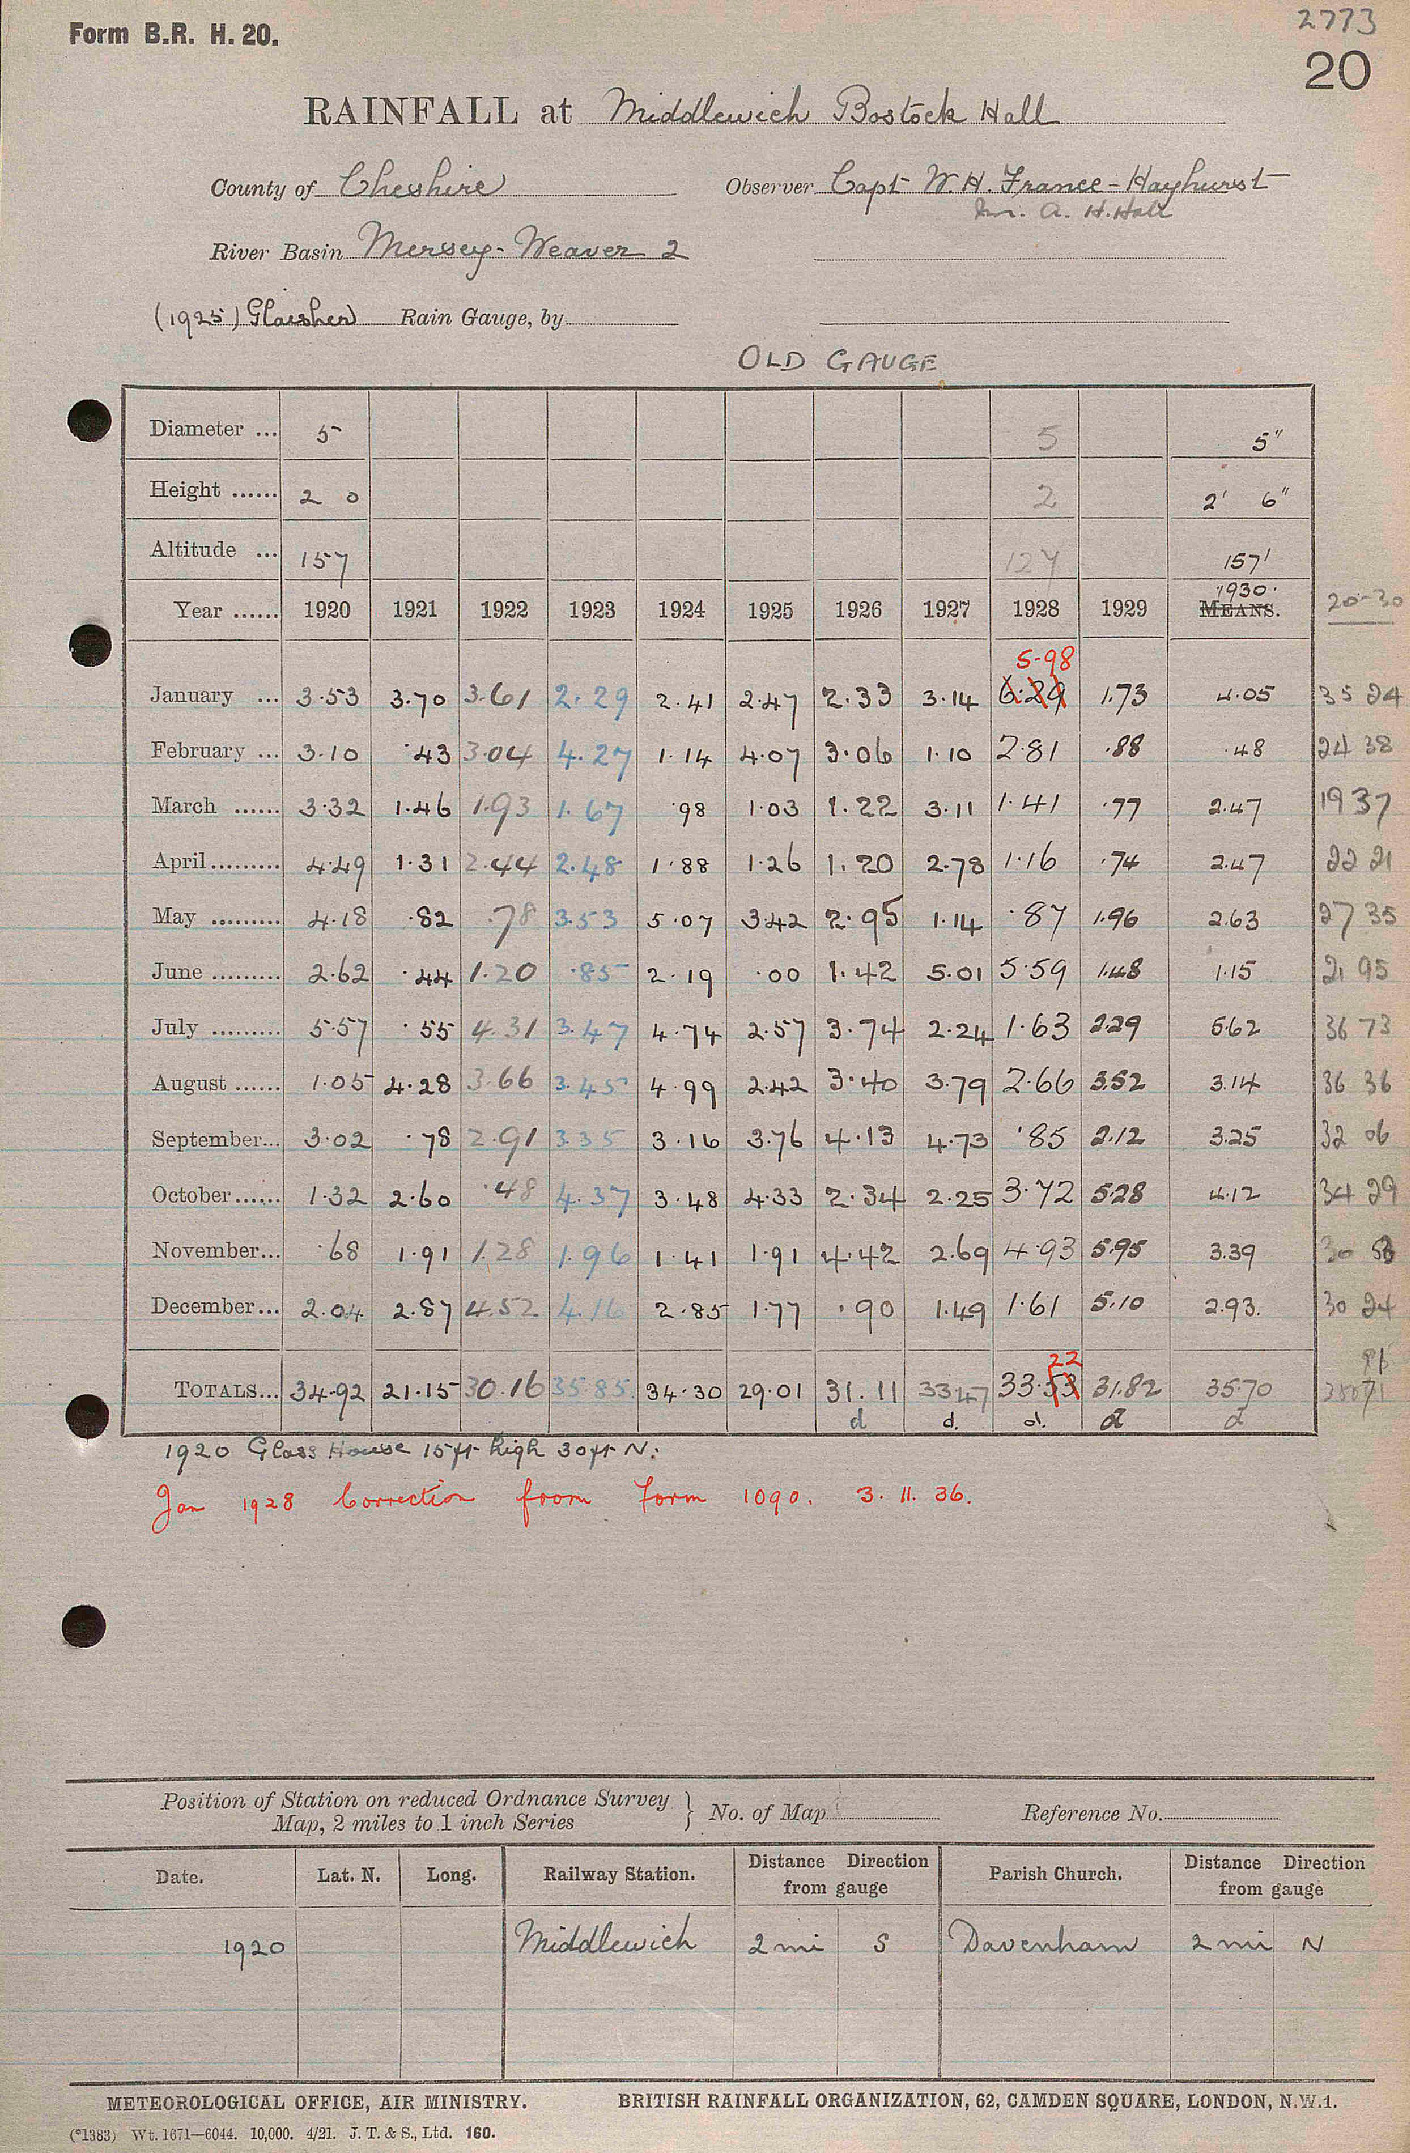 Form B.R. H. 20.
2773
20
RAINFALL at Middlewich Bostock Hall
County of Cheshire Observer Capt W. H. France-Hayhurst
Mr. A. H. Hall
River Basin Mersey-Weaver 2
(1925) Glaisher Rain Gauge, by
OLD GAUGE
Diameter ... 5 5 5"
Height ...... 2 0 2 2' 6"
Altitude ... 157 127 157'
Year ...... 1920 1921 1922 1923 1924 1925 1926 1927 1928 1929 1930. MEANS. 20-30
5.98
January ... 3.53 3.70 3.61 2.29 2.41 2.47 2.33 3.14 6.29 1.73 4.05 35 24
February ... 3.10 .43 3.04 4.27 1.14 4.07 3.06 1.10 2.81 .88 .48 24 38
March ...... 3.32 1.46 1.93 1.67 .98 1.03 1.22 3.11 1.41 .77 2.47 19 37
April ......... 4.49 1.31 2.44 2.48 1.88 1.26 1.20 2.78 1.16 .74 2.47 22 21
May ......... 4.18 .82 .78 3.53 5.07 3.42 2.95 1.14 .87 1.96 2.63 27 35
June ......... 2.62 .44 1.20 .85 2.19 .00 1.42 5.01 5.59 1.48 1.15 21 95
July ......... 5.57 .55 4.31 3.47 4.74 2.57 3.74 2.24 1.63 2.29 5.62 36 73
August ...... 1.05 4.28 3.66 3.45 4.99 2.42 3.40 3.79 2.66 3.52 3.14 36 36
September... 3.02 .78 2.91 3.35 3.16 3.76 4.13 4.73 .85 2.12 3.25 32 06
October ...... 1.32 2.60 .48 4.37 3.48 4.33 2.34 2.25 3.72 5.28 4.12 34 29
November... .68 1.91 1.28 1.96 1.41 1.91 4.42 2.69 4.93 5.95 3.39 30
December ... 2.04 2.87 4.52 4.16 2.85 1.77 .90 1.49 1.61 5.10 2.93. 30 24
22
TOTALS... 34.92 21.15 30.16 35.85 34.30 29.01 31.11 33.47 33.53 31.82 35.70
d d. d. d d
1920 Glass House 15ft high 30ft N.
Jan 1928 Correction from Form 1090. 3. 11. 36.
Position of Station on reduced Ordnance Survey Map, 2 miles to 1 inch Series } No. of Map Reference No.
Date. Lat. N. Long. Railway Station. Distance Direction from gauge Parish Church. Distance Direction from gauge
1920 Middlewich 2 mi S Davenham 2 mi N
METEOROLOGICAL OFFICE, AIR MINISTRY. BRITISH RAINFALL ORGANIZATION, 62, CAMDEN SQUARE, LONDON, N.W.1.
(*1383) Wt. 1671—6044. 10,000. 4/21. J. T. & S., Ltd. 160.